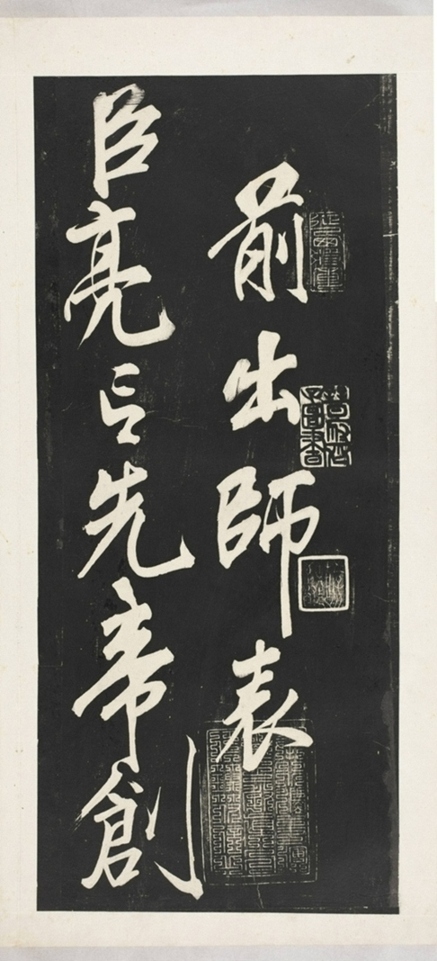 前出師表
臣亮言先帝創